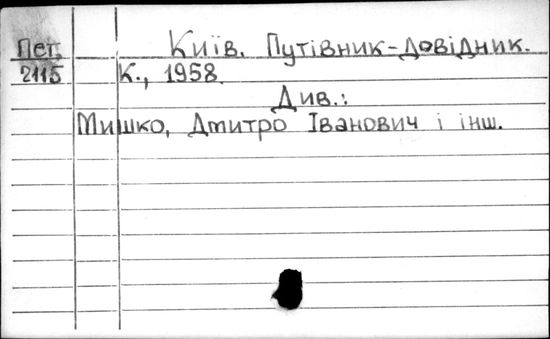 Пет. Київ. Путівник-довідник.
2115 К., 1958.
Див.:
Мишко, Дмитро Іванович і інш.